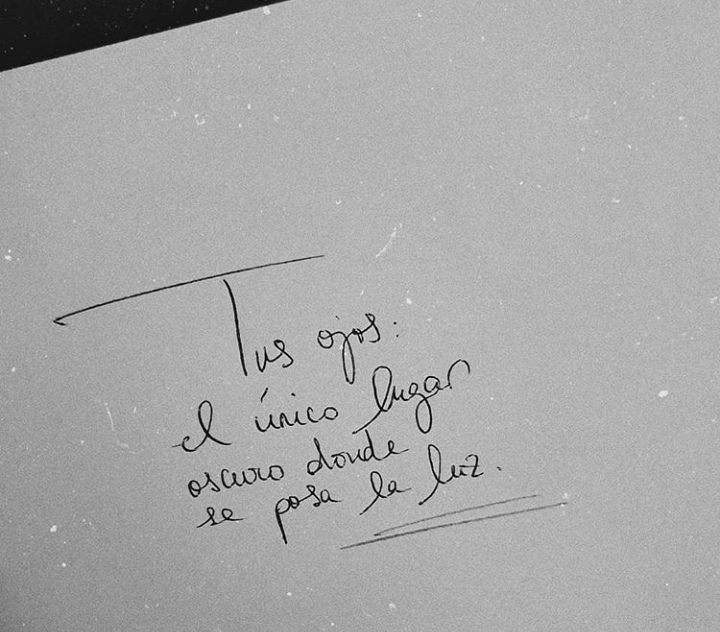 Tus ojos:
el único lugar
oscuro donde
se posa la luz.